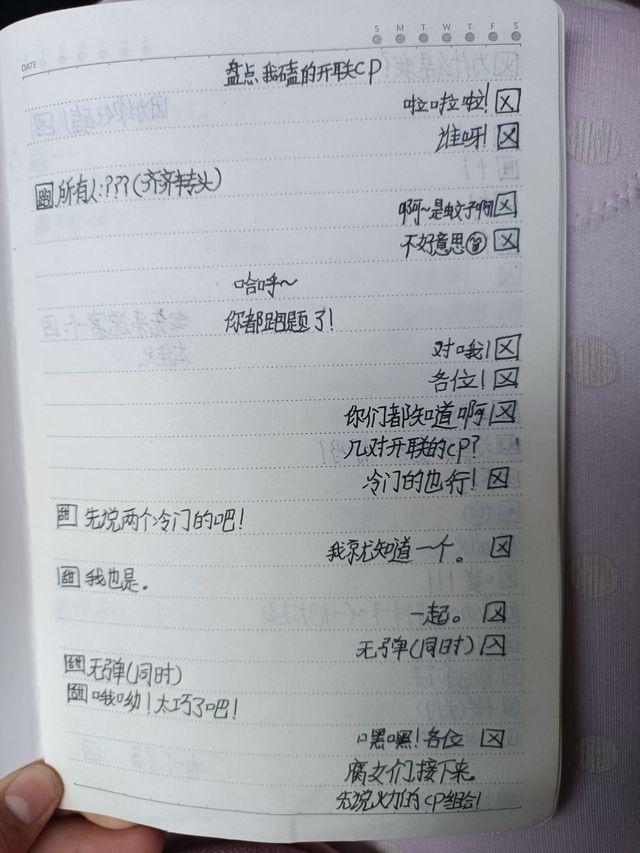 DATE
S M T W T F S
盘点我磕的开联CP
啦啦啦！
谁呀！
所有人：???(齐齐转头)
啊~是蚊子啊
不好意思
哈呼~
你都跑题了！
对哦！
各位！
你们都知道啊
几对开联的CP?
冷门的也行！
甜 先说两个冷门的吧！
我就知道一个。
甜 我也是。
一起。
无弹(同时)
甜 无弹(同时)
甜 哦呦！太巧了吧！
嘿嘿！各位
腐女们，接下来。
先说火的CP组合！